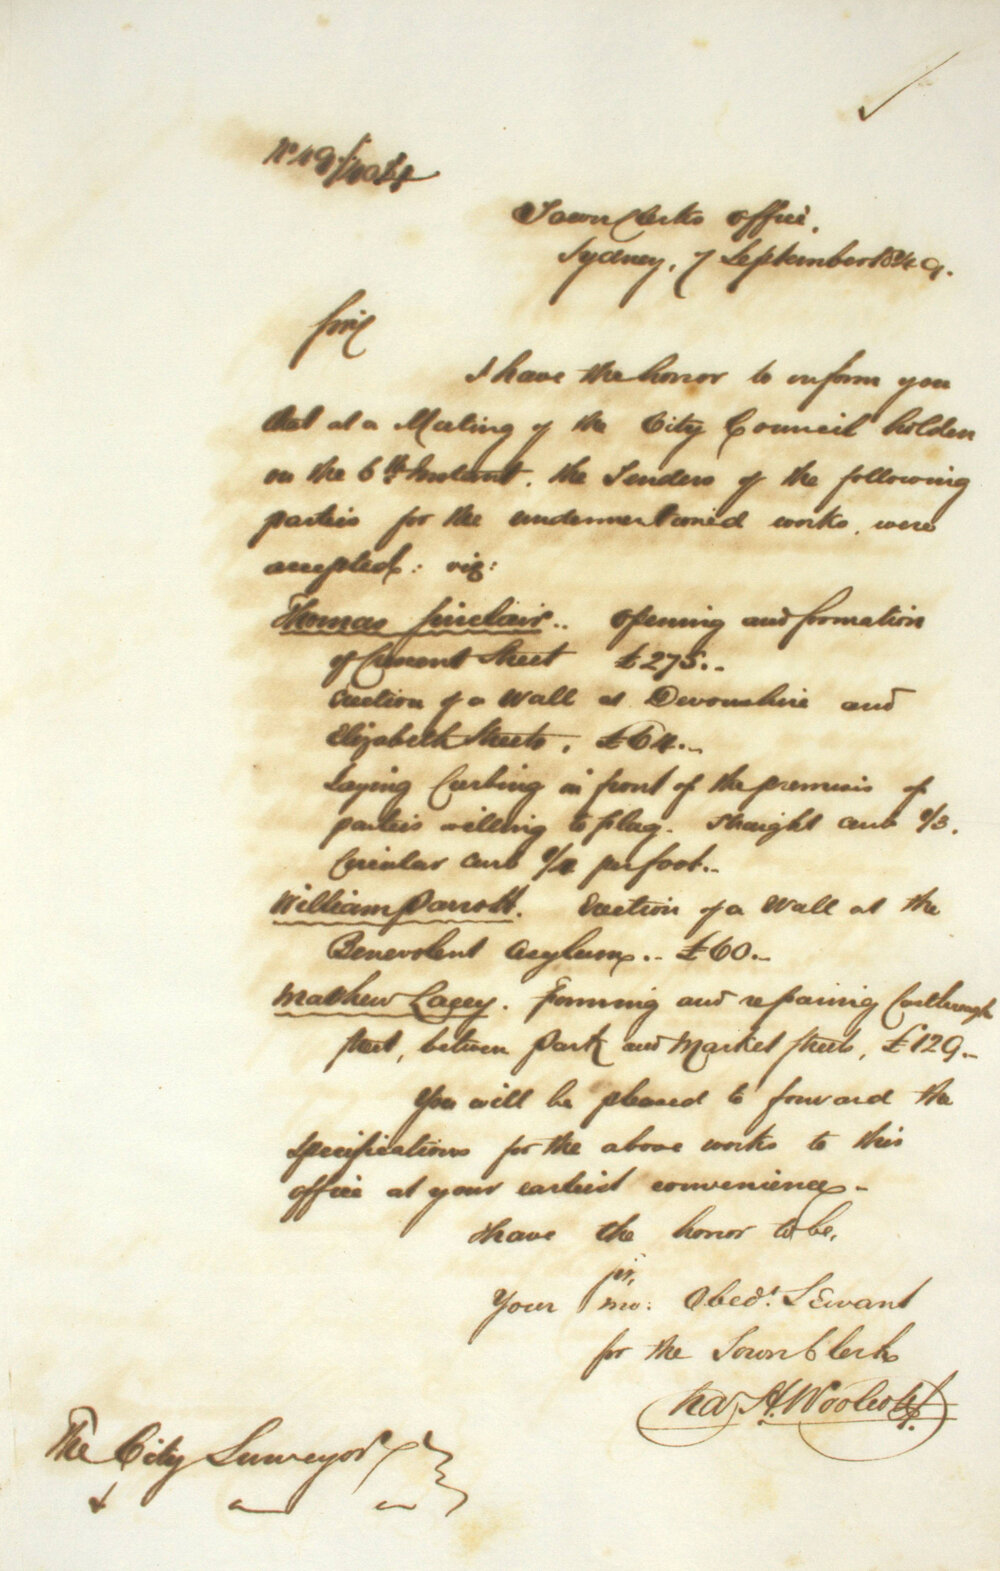 No 49/1034
Town Clerks Office,
Sydney, 7 September 1849.
Sir
I have the honor to inform you
that at a Meeting of the City Council holden
on the 6th Instant, the Tenders of the following
parties for the undermentioned works, were
accepted: viz:
Thomas Sinclair.. Opening and formation
of Street £275..
Erection of a Wall at Devonshire and
Elizabeth Streets, £64..
Laying Curbing in front of the premises of
parties willing to flag. Straight curb 2/3.
Circular curb per foot..
William Parrott. Erection of a Wall at the
Benevolent Asylum.. £60..
Mathew Lacey. Forming and repairing Castlereagh
Street, between Park and Market Streets, £129..
You will be pleased to forward the
specifications for the above works to this
office at your earliest convenience.
I have the honor to be,
Sir,
Your mo: Obedt. Servant
for the Town Clerk
Chas. H. Woolcott
The City Surveyor